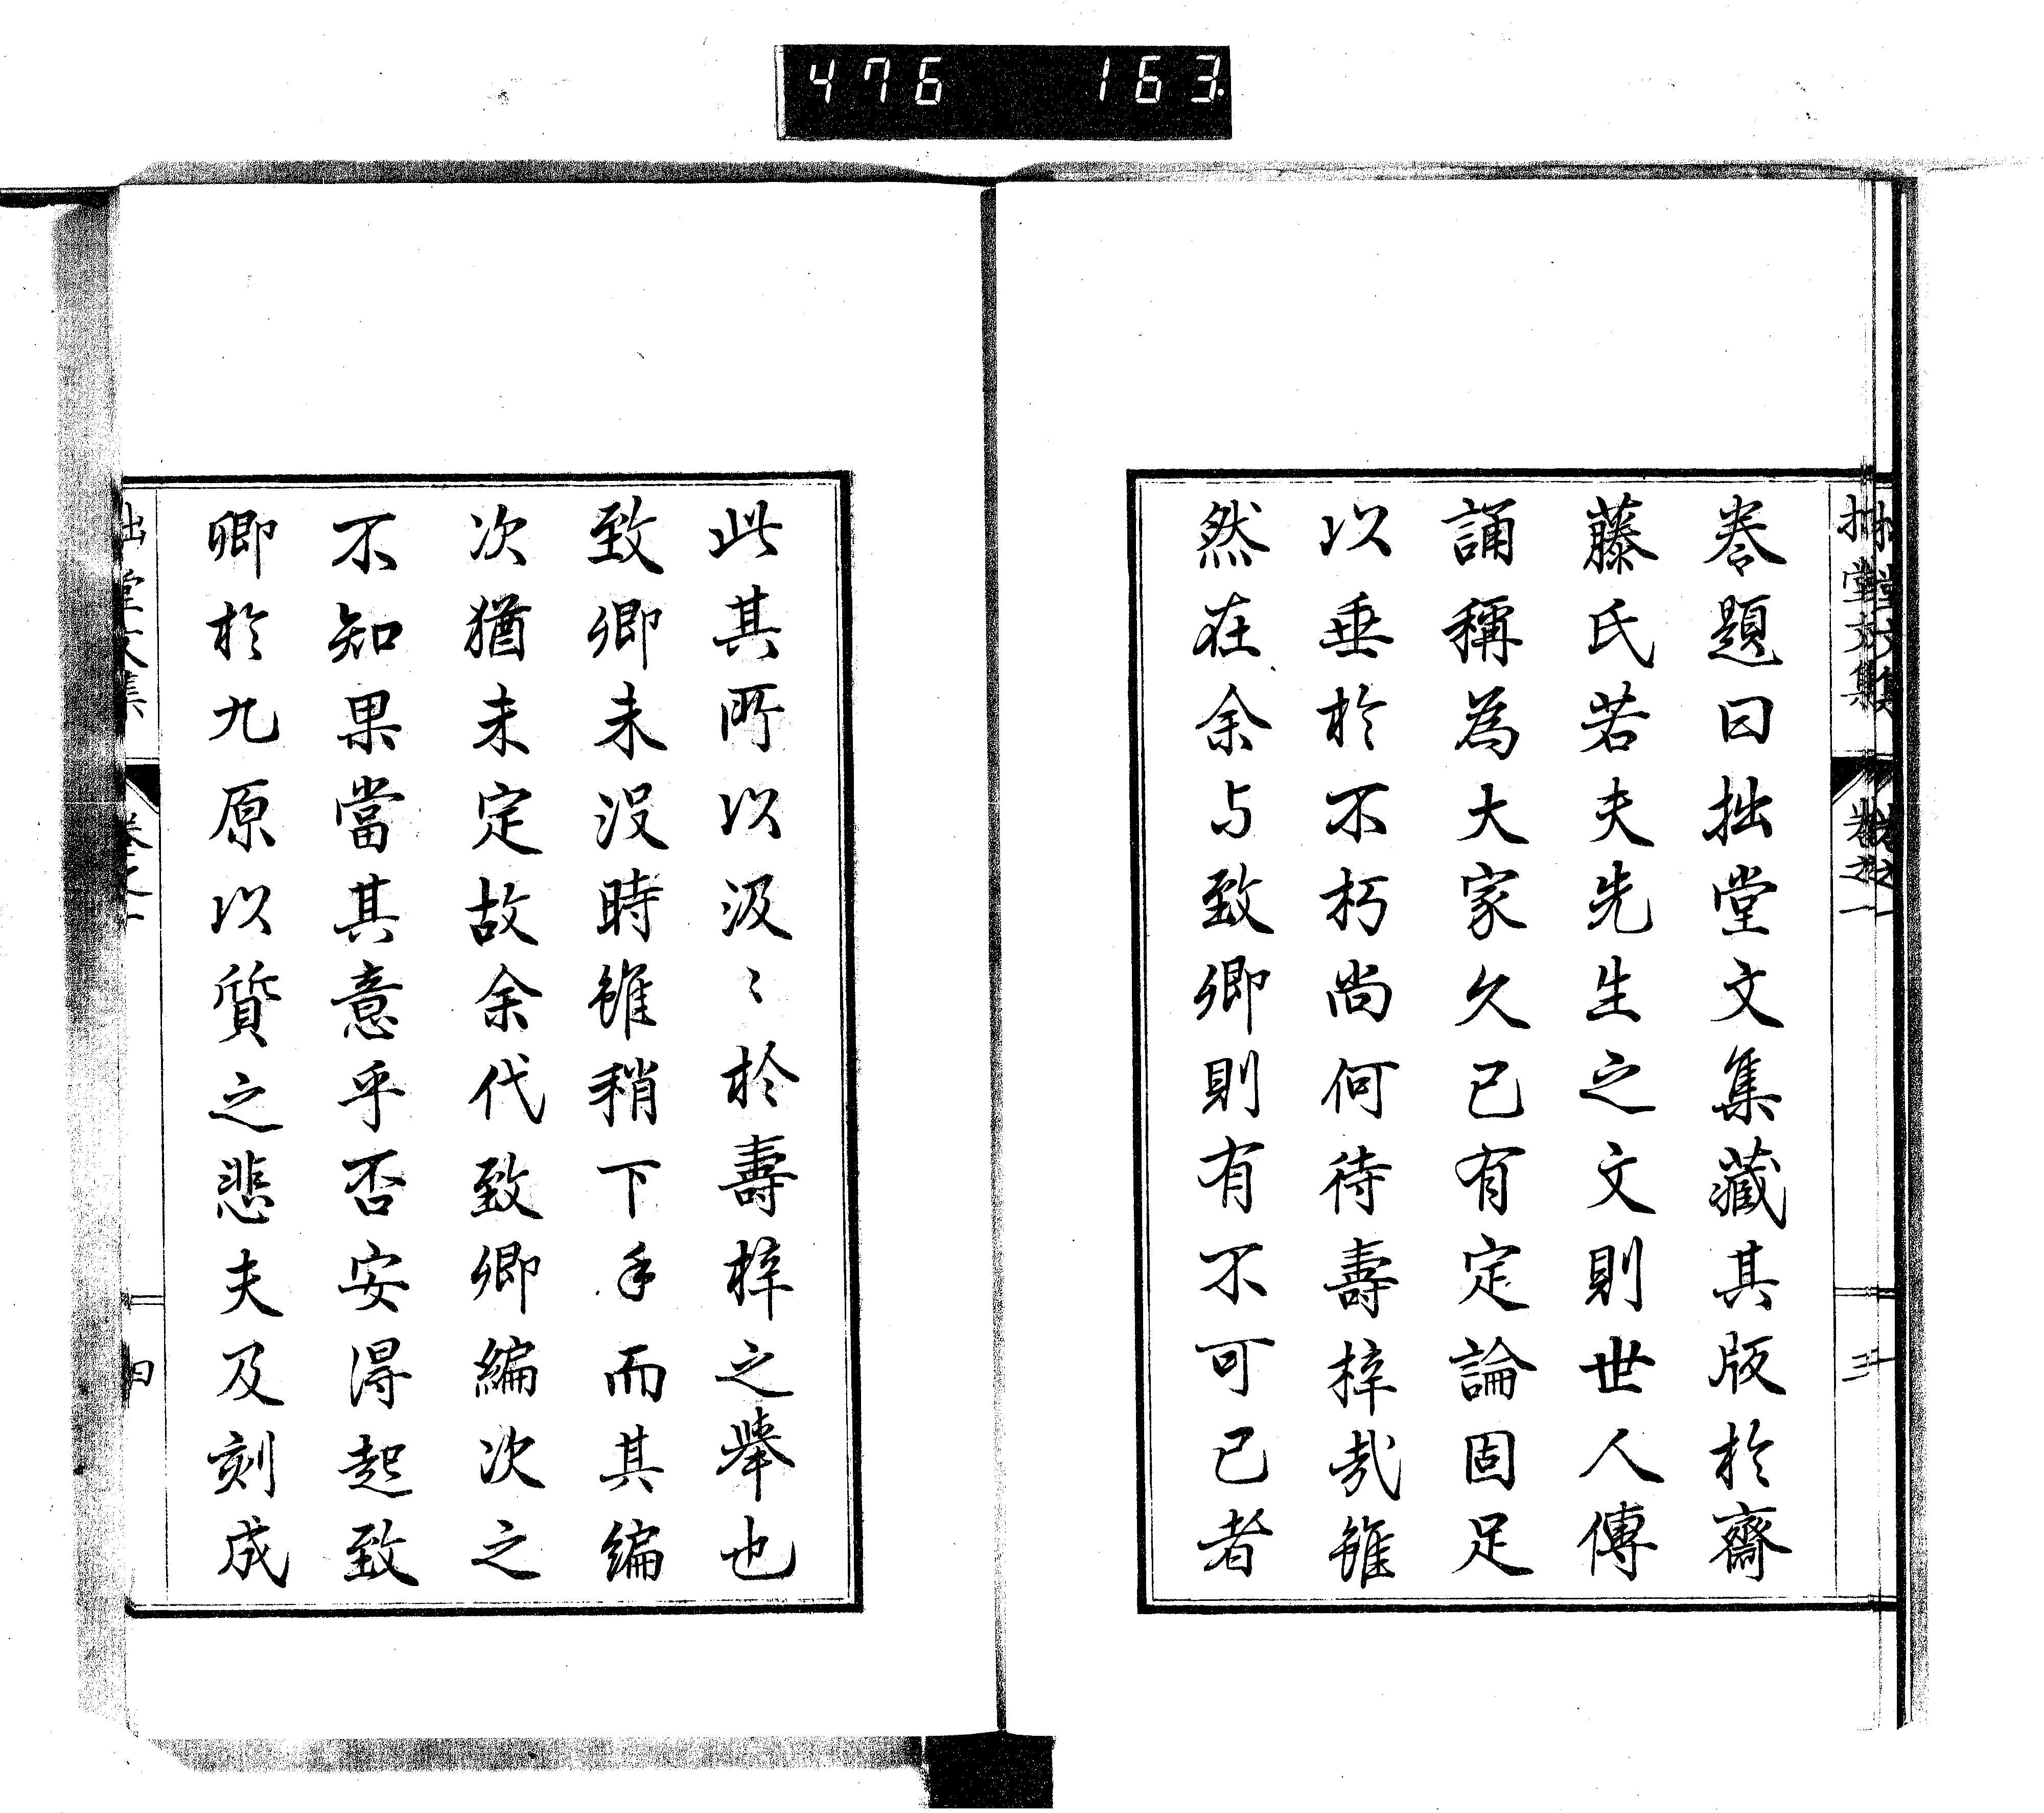 476 163
拙堂文集 卷之一 三
卷題曰拙堂文集藏其版於齋
藤氏若夫先生之文則世人傳
誦稱為大家久已有定論固足
以垂於不朽尚何待壽梓哉雖
然在余与致卿則有不可已者
此其所以汲〻於壽梓之舉也
致卿未沒時雖稍下手而其編
次猶未定故余代致卿編次之
不知果當其意乎否安得起致
卿於九原以質之悲夫及刻成
拙堂文集 卷之一